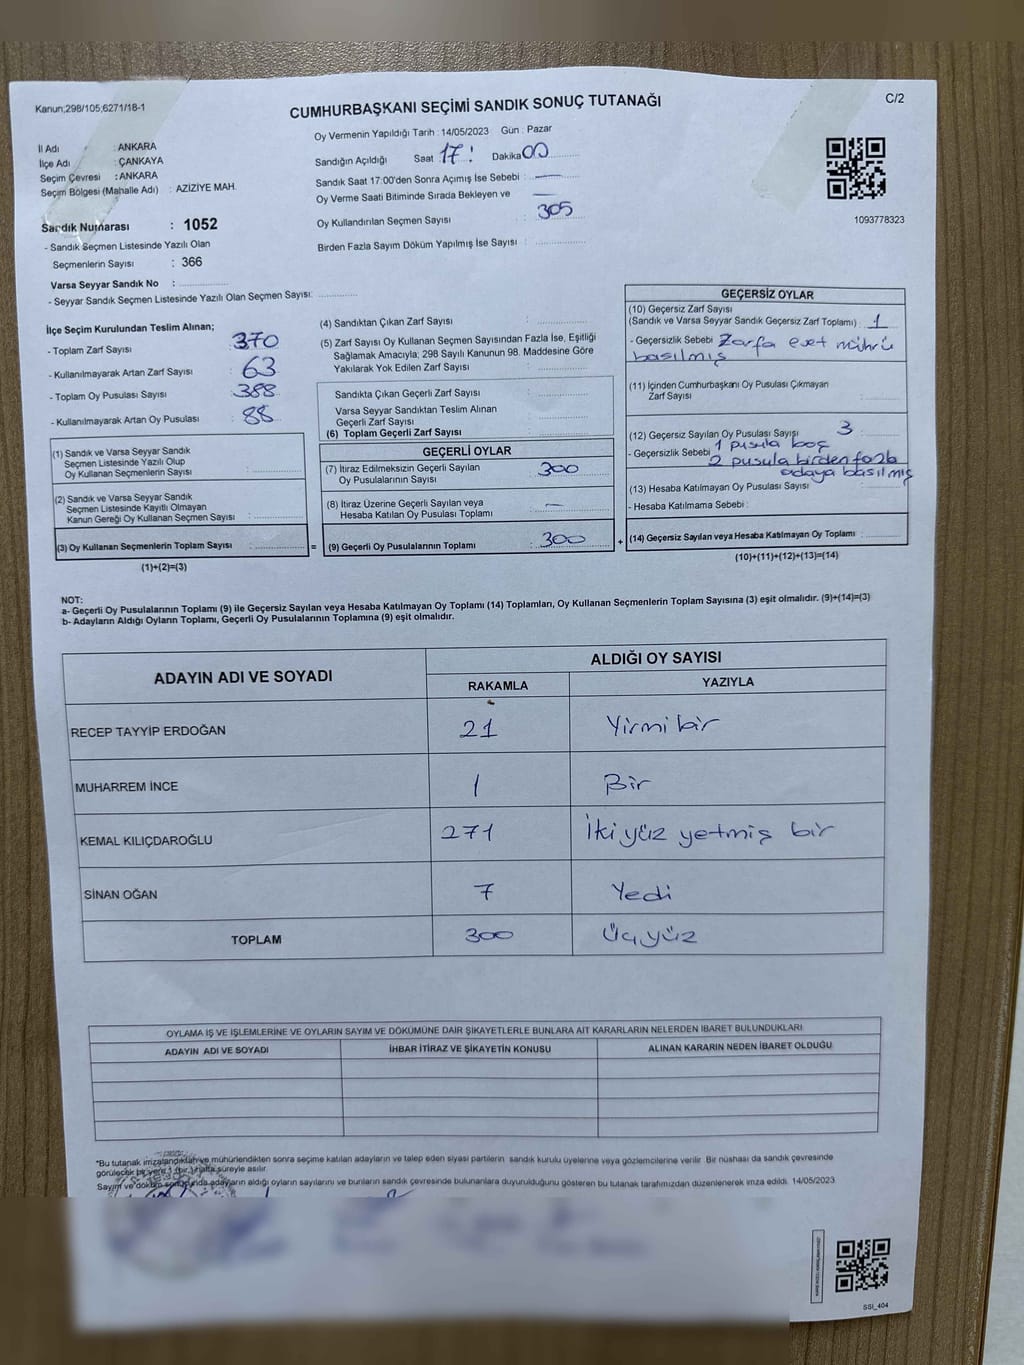 Kanun;298/105;6271/18-1
CUMHURBAŞKANI SEÇİMİ SANDIK SONUÇ TUTANAĞI
C/2
İl Adı : ANKARA
İlçe Adı : ÇANKAYA
Seçim Çevresi : ANKARA
Seçim Bölgesi (Mahalle Adı) : AZİZİYE MAH.
Sandık Numarası : 1052
- Sandık Seçmen Listesinde Yazılı Olan
Seçmenlerin Sayısı : 366
Varsa Seyyar Sandık No :
- Seyyar Sandık Seçmen Listesinde Yazılı Olan Seçmen Sayısı:
Oy Vermenin Yapıldığı Tarih : 14/05/2023 Gün : Pazar
Sandığın Açıldığı Saat 17: Dakika 00
Sandık Saat 17:00'den Sonra Açımış İse Sebebi : —
Oy Verme Saati Bitiminde Sırada Bekleyen ve —
Oy Kullandırılan Seçmen Sayısı : 305
Birden Fazla Sayım Döküm Yapılmış İse Sayısı :
1093778323
İlçe Seçim Kurulundan Teslim Alınan;
- Toplam Zarf Sayısı : 370
- Kullanılmayarak Artan Zarf Sayısı : 63
- Toplam Oy Pusulası Sayısı : 388
- Kullanılmayarak Artan Oy Pusulası : 88
(1) Sandık ve Varsa Seyyar Sandık
Seçmen Listesinde Yazılı Olup
Oy Kullanan Seçmenlerin Sayısı :
(2) Sandık ve Varsa Seyyar Sandık
Seçmen Listesinde Kayıtlı Olmayan
Kanun Gereği Oy Kullanan Seçmen Sayısı :
(3) Oy Kullanan Seçmenlerin Toplam Sayısı :
(1)+(2)=(3)
=
(4) Sandıktan Çıkan Zarf Sayısı :
(5) Zarf Sayısı Oy Kullanan Seçmen Sayısından Fazla İse, Eşitliği
Sağlamak Amacıyla; 298 Sayılı Kanunun 98. Maddesine Göre
Yakılarak Yok Edilen Zarf Sayısı :
Sandıkta Çıkan Geçerli Zarf Sayısı :
Varsa Seyyar Sandıktan Teslim Alınan
Geçerli Zarf Sayısı :
(6) Toplam Geçerli Zarf Sayısı :
GEÇERLİ OYLAR
(7) İtiraz Edilmeksizin Geçerli Sayılan
Oy Pusulalarının Sayısı : 300
(8) İtiraz Üzerine Geçerli Sayılan veya
Hesaba Katılan Oy Pusulası Toplamı : —
(9) Geçerli Oy Pusulalarının Toplamı : 300
+
GEÇERSİZ OYLAR
(10) Geçersiz Zarf Sayısı
(Sandık ve Varsa Seyyar Sandık Geçersiz Zarf Toplamı) : 1
- Geçersizlik Sebebi : Zarfa evet mührü
basılmış
(11) İçinden Cumhurbaşkanı Oy Pusulası Çıkmayan
Zarf Sayısı :
(12) Geçersiz Sayılan Oy Pusulası Sayısı : 3
- Geçersizlik Sebebi : 1 pusula boş
2 pusula birden fazla
adaya basılmış
(13) Hesaba Katılmayan Oy Pusulası Sayısı :
- Hesaba Katılmama Sebebi :
(14) Geçersiz Sayılan veya Hesaba Katılmayan Oy Toplamı :
(10)+(11)+(12)+(13)=(14)
NOT:
a- Geçerli Oy Pusulalarının Toplamı (9) ile Geçersiz Sayılan veya Hesaba Katılmayan Oy Toplamı (14) Toplamları, Oy Kullanan Seçmenlerin Toplam Sayısına (3) eşit olmalıdır. (9)+(14)=(3)
b- Adayların Aldığı Oyların Toplamı, Geçerli Oy Pusulalarının Toplamına (9) eşit olmalıdır.
ADAYIN ADI VE SOYADI
ALDIĞI OY SAYISI
RAKAMLA YAZIYLA
RECEP TAYYİP ERDOĞAN 21 Yirmi bir
MUHARREM İNCE 1 Bir
KEMAL KILIÇDAROĞLU 271 İki yüz yetmiş bir
SİNAN OĞAN 7 Yedi
TOPLAM 300 Üçyüz
OYLAMA İŞ VE İŞLEMLERİNE VE OYLARIN SAYIM VE DÖKÜMÜNE DAİR ŞİKAYETLERLE BUNLARA AİT KARARLARIN NELERDEN İBARET BULUNDUKLARI
ADAYIN ADI VE SOYADI İHBAR İTİRAZ VE ŞİKAYETİN KONUSU ALINAN KARARIN NEDEN İBARET OLDUĞU
*Bu tutanak imzalandıktan ve mühürlendikten sonra seçime katılan adayların ve talep eden siyasi partilerin sandık kurulu üyelerine veya gözlemcilerine verilir. Bir nüshası da sandık çevresinde
görülecek bir yere 1 (bir) hafta süreyle asılır.
Sayım ve döküm sonucunda adayların aldığı oyların sayılarını ve bunların sandık çevresinde bulunanlara duyurulduğunu gösteren bu tutanak tarafımızdan düzenlenerek imza edildi. 14/05/2023
SSI_404